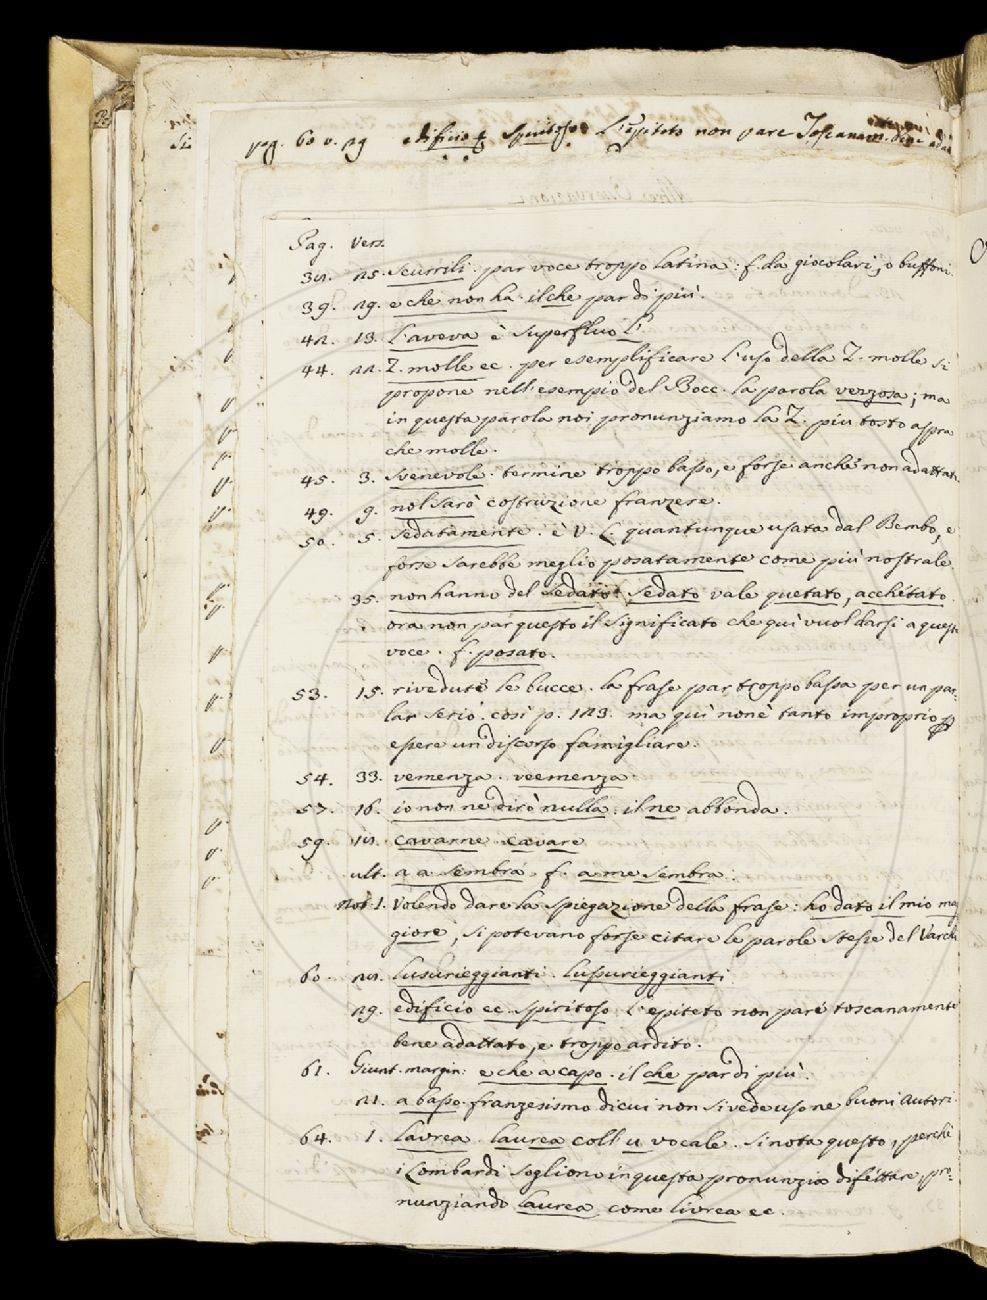 pag. 60 v. 29 edificio et spiritoso. L'epiteto non pare Toscanam.
Pag. Vers.
32. 25. scurrili. par voce troppo latina: f. da giocolari, o buffoni.
39. 29. e che non ha. il che par di più.
42. 13. L'aveva è superfluo l'
44. 22. Z. molle ec. per esemplificare l'uso della Z. molle si
propone nell'esempio del Bocc. la parola vezzosa; ma
in questa parola noi pronunziamo la Z. più tosto aspra
che molle.
45. 3. svenevole. termine troppo basso, e forse anche non adattato.
49. 9. nol sarò costruzione franzese.
50. 5. sedatamente. è V. L. quantunque usata dal Bembo, e
forse sarebbe meglio posatamente come più nostrale
35. non hanno del sedato. sedato vale quetato, acchetato.
ora non par questo il significato che qui vuol darsi a questa
voce. f. posato.
53. 15. rivedute le bucce. la frase par troppo bassa per un par-
lar serio. così p. 123. ma qui non è tanto improprio p
essere un discorso famigliare.
54. 33. vemenza. veemenza.
57. 16. io non ne dirò nulla. il ne abbonda.
59. 12. cavarne. cavare
ult. a a sembra. f. a me sembra.
Not. 1. Volendo dare la spiegazione della frase: ho dato il mio mag
giore, si potevano forse citare le parole stesse del Varchi
60. 22. lusurieggianti. lussurieggianti
29. edificio ec. spiritoso. l'epiteto non pare toscanamente
bene adattato, e troppo ardito.
61. Giunt. margin: e che a capo. il che par di più.
21. a basso. franzesismo di cui non si vede uso ne buoni autori.
64. 1. lavrea. laurea coll'u vocale. si nota questo, perchè
i Lombardi sogliono in questa pronunzia difettare, pro-
nunziando laurea come livrea ec.